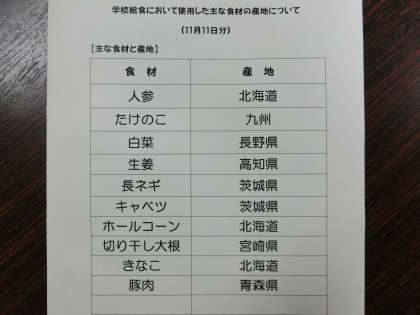 学校給食において使用した主な食材の産地について
(11月11日分)
【主な食材と産地】
食 材 産 地
人参 北海道
たけのこ 九州
白菜 長野県
生姜 高知県
長ネギ 茨城県
キャベツ 茨城県
ホールコーン 北海道
切り干し大根 宮崎県
きなこ 北海道
豚肉 青森県